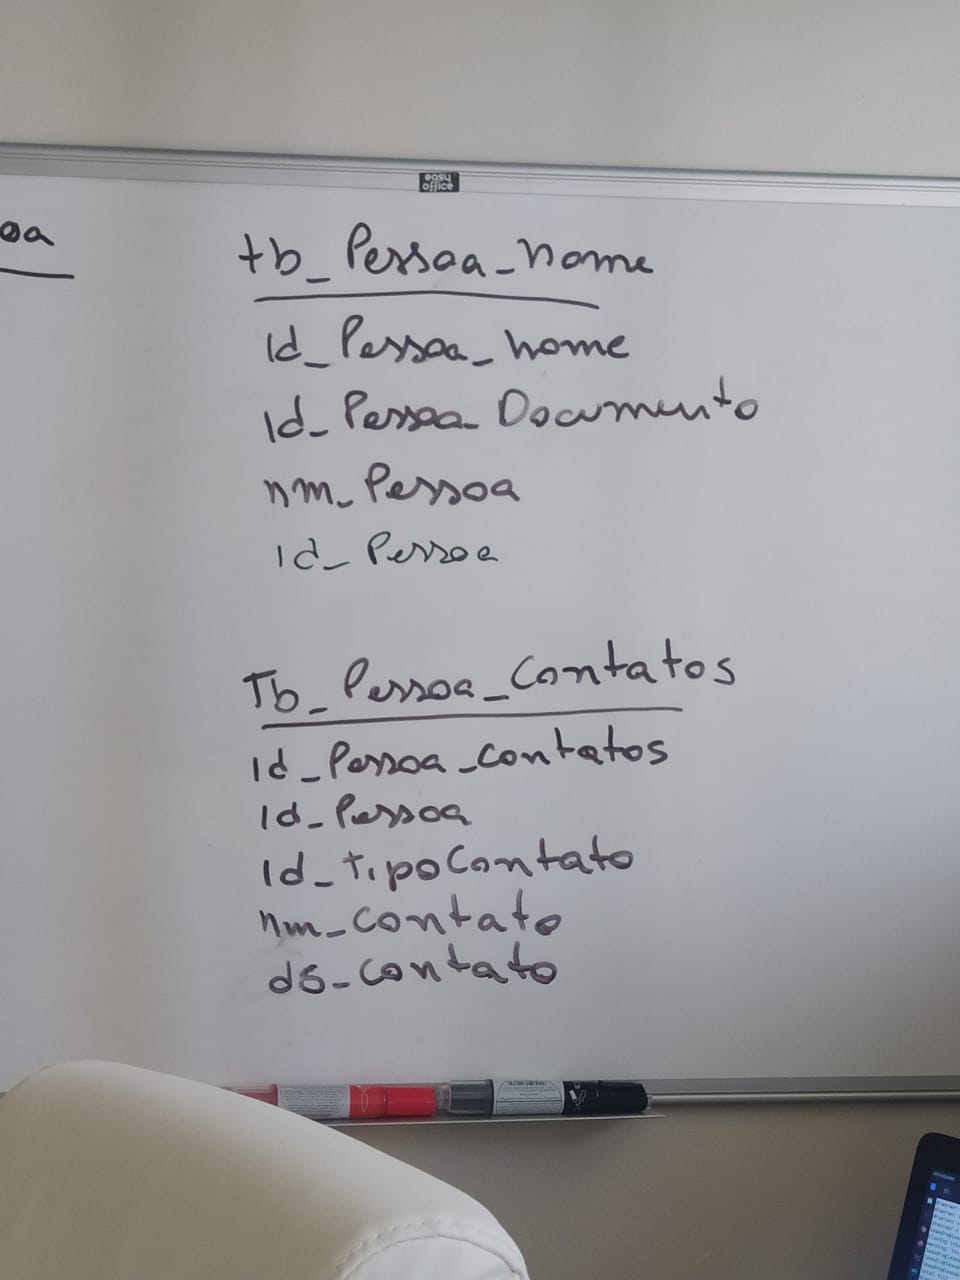 easy
office
oa
tb_Pessoa_nome
Id_Pessoa_nome
Id_Pessoa_Documento
nm_Pessoa
Id_Pessoa
Tb_Pessoa_Contatos
Id_Pessoa_contatos
Id_Pessoa
Id_tipoContato
nm_contato
ds_contato